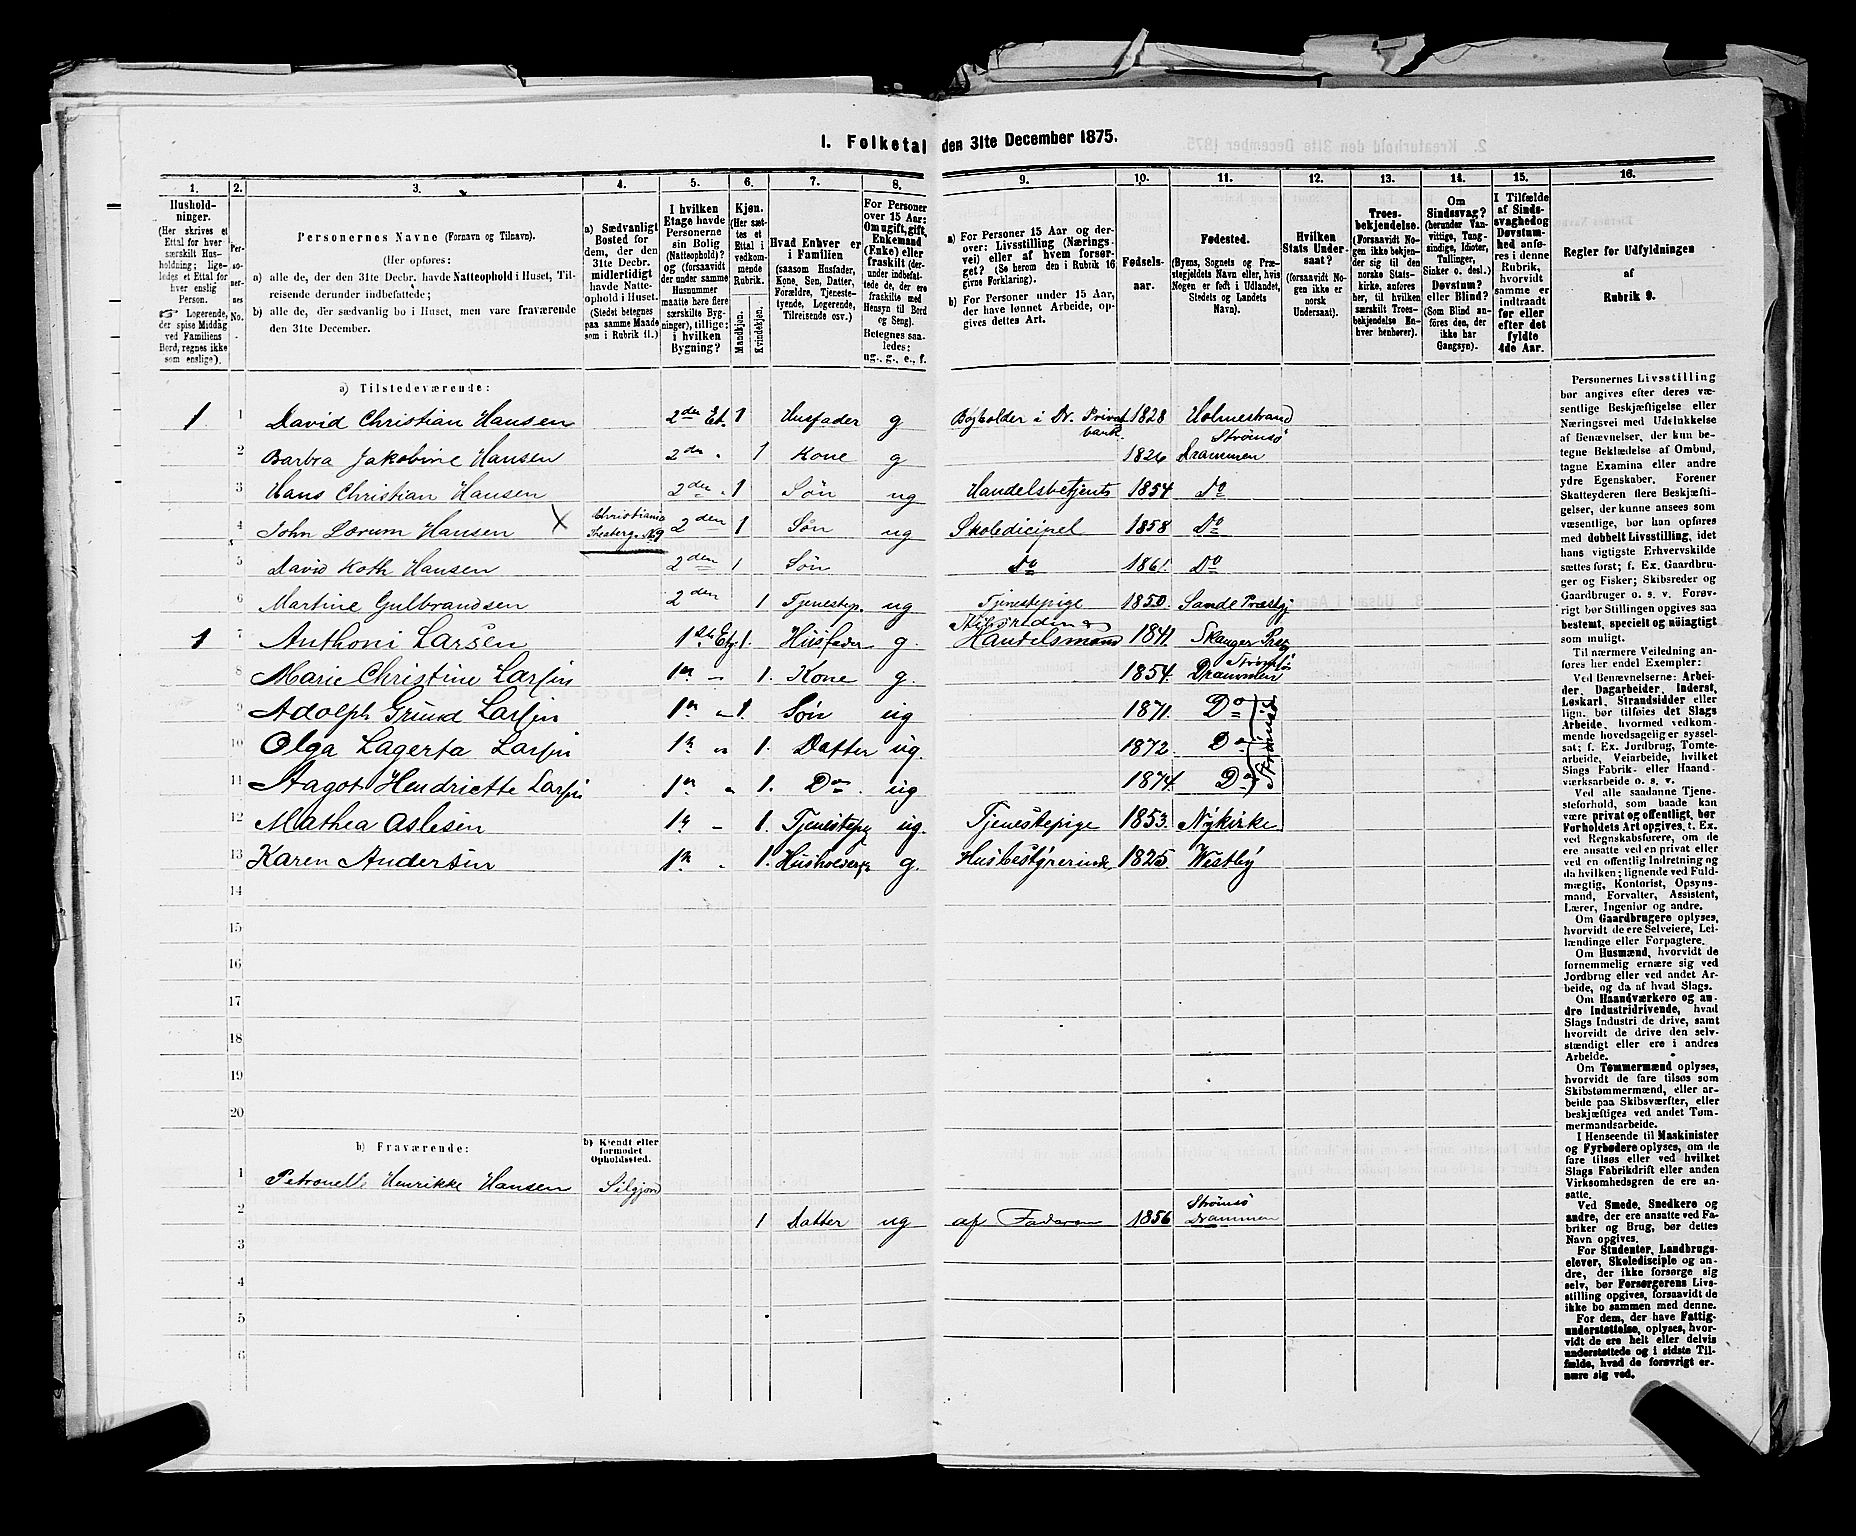 I. Folketal den 31te December 1875.
1. 2. 3. 4. 5. 6. 7. 8. 9. 10. 11. 12. 13. 14. 15. 16.
Husholdninger. (Her skrives et Ettal for hver særskilt Husholdning; ligeledes et Ettal for hver enslig Person. ☞ Logerende, der spise Middag ved Familiens Bord, regnes ikke som enslige).
Personernes No.
Personernes Navne (Fornavn og Tilnavn).
(Her opføres:
a) alle de, der den 31te Decbr. havde Natteophold i Huset, Tilreisende derunder indbefattede;
b) alle de, der sædvanlig bo i Huset, men vare fraværende den 31te December.
a) Sædvanligt Bosted for dem, der den 31te Decbr. midlertidigt havde Natteophold i Huset. (Stedet betegnes paa samme Maade som i Rubrik 11.)
I hvilken Etage havde Personerne sin Bolig (Natteophold)? og (forsaavidt der under samme Husnummer maatte høre flere særskilte Bygninger), tillige: i hvilken Bygning?
Kjøn. (Her sættes et Ettal i vedkommende Rubrik.
Mandkjøn. Kvindekjøn.
Hvad Enhver er i Familien (saasom Husfader, Kone, Søn, Datter, Forældre, Tjenestetyende, Logerende, Tilreisende osv.)
For Personer over 15 Aar: Om ugift, gift, Enkemand (Enke) eller fraskilt (derunder indbefattede de, der ere fraskilte med Hensyn til Bord og Seng). Betegnes saaledes: ug., g., e., f.
a) For Personer 15 Aar og derover: Livsstilling (Næringsvei) eller af hvem forsørget? (Se herom den i Rubrik 16 givne Forklaring).
b) For Personer under 15 Aar, der have lønnet Arbeide, opgives dettes Art.
Fødselsaar.
Fødested. (Byens, Sognets og Præstegjeldets Navn eller, hvis Nogen er født i Udlandet, Stedets og Landets Navn).
Hvilken Stats Undersaat? (forsaavidt Nogen ikke er norsk Undersaat).
Troesbekjendelse. (Forsaavidt Nogen ikke bekjender sig til den norske Statskirke, anføres her, til hvilken særskilt Troesbekjendelse Enhver henhører).
Om Sindssvag? (herunder Vanvittige, Tungsindige, Idioter, Tullinger, Sinker o. desl.) Døvstum? eller Blind? (Som Blind anføres den, der ikke har Gangsyn).
I Tilfælde af Sindssvaghed og Døvstumhed anføres i denne Rubrik, hvorvidt samme er indtraadt før eller efter det fyldte 4de Aar.
Regler for Udfyldningen af Rubrik 9.
a) Tilstedeværende:
1 1 David Christian Hansen 2den Et. 1 Husfader g Bogholder i Dr. Privatbank. 1828 Holmestrand
2 Barbra Jakobine Hansen 2den " 1 Kone g 1826 Strømsø Drammen
3 Hans Christian Hansen 2den " 1 Søn ug Handelsbetjent 1854 Do
4 John Lørum Hansen X Christiania 2den 1 Søn ug Skoledicipel 1858 Do
5 David Koth Hansen 2den 1 Søn do 1861 Do
6 Martine Gulbrandsen 2den 1 Tjenestep. ug Tjenestepige 1850. Sande Præstgj
1 7 Anthoni Larsen 1ste Etg. 1. Husfader g. Handelsmand 1841. Skauger
8 Marie Christine Larsen 1n - 1. Kone g. 1854. Strømsø Drammen
9 Adolph Grund Larsen 1n - 1. Søn ug 1871. Do
10 Olga Lagerta Larsen 1n " 1. Datter ug. 1872. Do Strømsø
11 Aagot Hendriette Larsen 1n " 1. Do. ug 1874. Do
12 Mathea Aslesen 1n - 1. Tjenestepg ug. Tjenestepige 1853. Nykirke
13 Karen Andersen 1n - 1. g. Husbestyrerinde 1825. Westby
14
15
16
17
18
19
20
b) Fraværende:
b) Kjendt eller formodet Opholdssted.
1 Petronelle Henrikke Hansen Silgjord
2 1 Datter ug af Faderen 1856 Strømsø Drammen
3
4
5
6
Personernes Livsstilling bør angives efter deres væsentlige Beskjæftigelse eller Næringsvei med Udelukkelse af Benævnelser, der kun betegne Beklædelse af Ombud, tagne Examina eller andre ydre Egenskaber. Forener Skatteyderen flere Beskjæftigelser, der kunne ansees som væsentlige, bør han opføres med dobbelt Livsstilling, idet hans vigtigste Erhvervskilde sættes først; f. Ex. Gaardbruger og Fisker; Skibsreder og Gaardbruger o. s. v. Forøvrigt bør Stillingen opgives saa bestemt, specielt og nøiagtigt som muligt.
Til nærmere Veiledning anføres her endel Exempler:
Ved Benævnelserne: Arbeider, Dagarbeider, Inderst, Løskarl, Strandsidder eller lign. bør tilføies det Slags Arbeide, hvormed vedkommende hovedsagelig er sysselsat; f. Ex. Jordbrug, Tomtearbeide, Veiarbeide, hvilket Slags Fabrik- eller Haandværksarbeide o. s. v.
Ved alle saadanne Tjenesteforhold, som baade kan være privat og offentligt, bør Forholdets Art opgives, f. Ex. ved Regnskabsførere, om de ere ansatte ved en privat eller ved en offentlig Indretning og da hvilken; lignende ved Fuldmægtig, Kontorist, Opsynsmand, Forvalter, Assistent, Lærer, Ingeniør og andre.
Om Gaardbrugere oplyses, hvorvidt de ere Selveiere, Leilændinge eller Forpagtere.
Om Husmænd, hvorvidt de fornemmelig ernære sig ved Jordbrug eller ved andet Arbeide, og da af hvad Slags.
Om Haandværkere og andre Industridrivende, hvad Slags Industri de drive, samt hvorvidt de drive den selvstændigt eller ere i andres Arbeide.
Om Tømmermænd oplyses, hvorvidt de fare tilsøs som Skibstømmermænd, eller arbeide paa Skibsværfter, eller beskjæftiges ved andet Tømmermandsarbeide.
I Henseende til Maskinister og Fyrbødere oplyses, om de fare tilsøs eller ved hvilket Slags Fabrikdrift eller anden Virksomhedsgren de ere ansatte.
Ved Smede, Snedkere og andre, der ere ansatte ved Fabriker og Brug, bør dettes Navn opgives.
For Studenter, Landbrugselever, Skoledisciple og andre, der ikke forsørge sig selv, bør Forsørgerens Livsstilling opgives, forsaavidt de ikke bo sammen med denne.
For dem, der have Fattigunderstøttelse, oplyses, hvorvidt de ere helt eller delvis understøttede og i sidste Tilfælde, hvad de forøvrigt ernære sig ved.